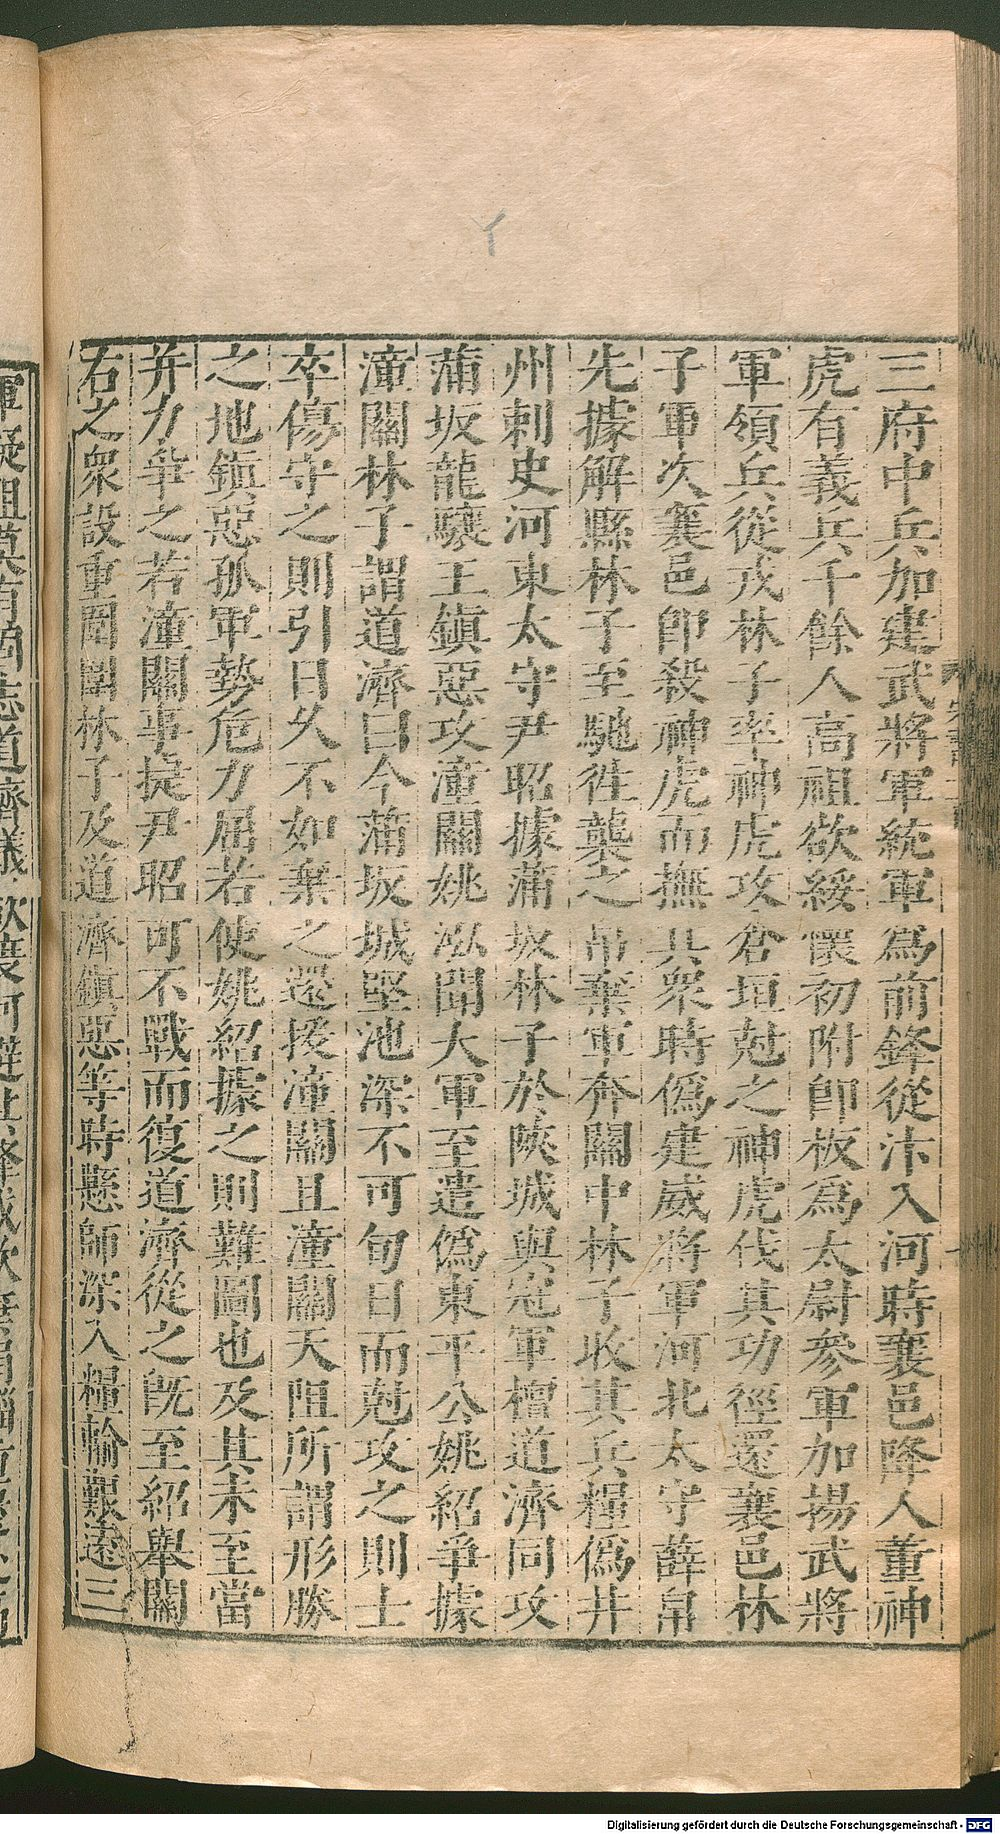 三府中兵加建武將軍統軍爲前鋒從汴入河時襄邑降人董神
虎有義兵千餘人高祖欲綏懷初附即板爲太尉參軍加揚武將
軍領兵從戎林子率神虎攻倉垣尅之神虎伐其功徑還襄邑林
子軍次襄邑即殺神虎而撫其衆時僞建威將軍河北太守薛帛
先據解縣林子至馳徃襲之帛棄軍奔關中林子收其兵糧僞并
州刺史河東太守尹昭據蒲坂林子於陝城與冠軍檀道濟同攻
蒲坂龍驤王鎭惡攻潼關姚泓聞大軍至遣僞東平公姚紹爭據
潼關林子謂道濟曰今蒲坂城堅池深不可旬日而尅攻之則士
卒傷守之則引日久不如棄之還援潼關且潼關天阻所謂形勝
之地鎭惡孤軍勢危力屈若使姚紹據之則難圖也及其未至當
并力爭之若潼關事捷尹昭可不戰而復道濟從之旣至紹舉關
右之衆設重圍圍林子及道濟鎭惡等時懸師深入糧輸艱遠三
Digitalisierung gefördert durch die Deutsche Forschungsgemeinschaft - DFG